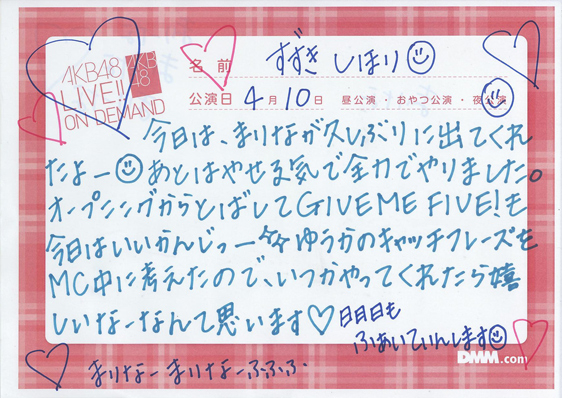 AKB48
LIVE!!
ON DEMAND
AKB
48
名前 すずき しほり
公演日 4月10日 昼公演・おやつ公演・夜公演
今日は、まりなが久しぶりに出てくれ
たよー あとはやせる気で全力でやりました。
オープニングからとばしてGIVE ME FIVE!も
今日はいいかんじっー ゆうかのキャッチフレーズを
MC中に考えたので、いつかやってくれたら嬉
しいなーなんて思います♡
日日日も
ふぁいてぃんします
まりなー まりなーふふふ
DMM.com